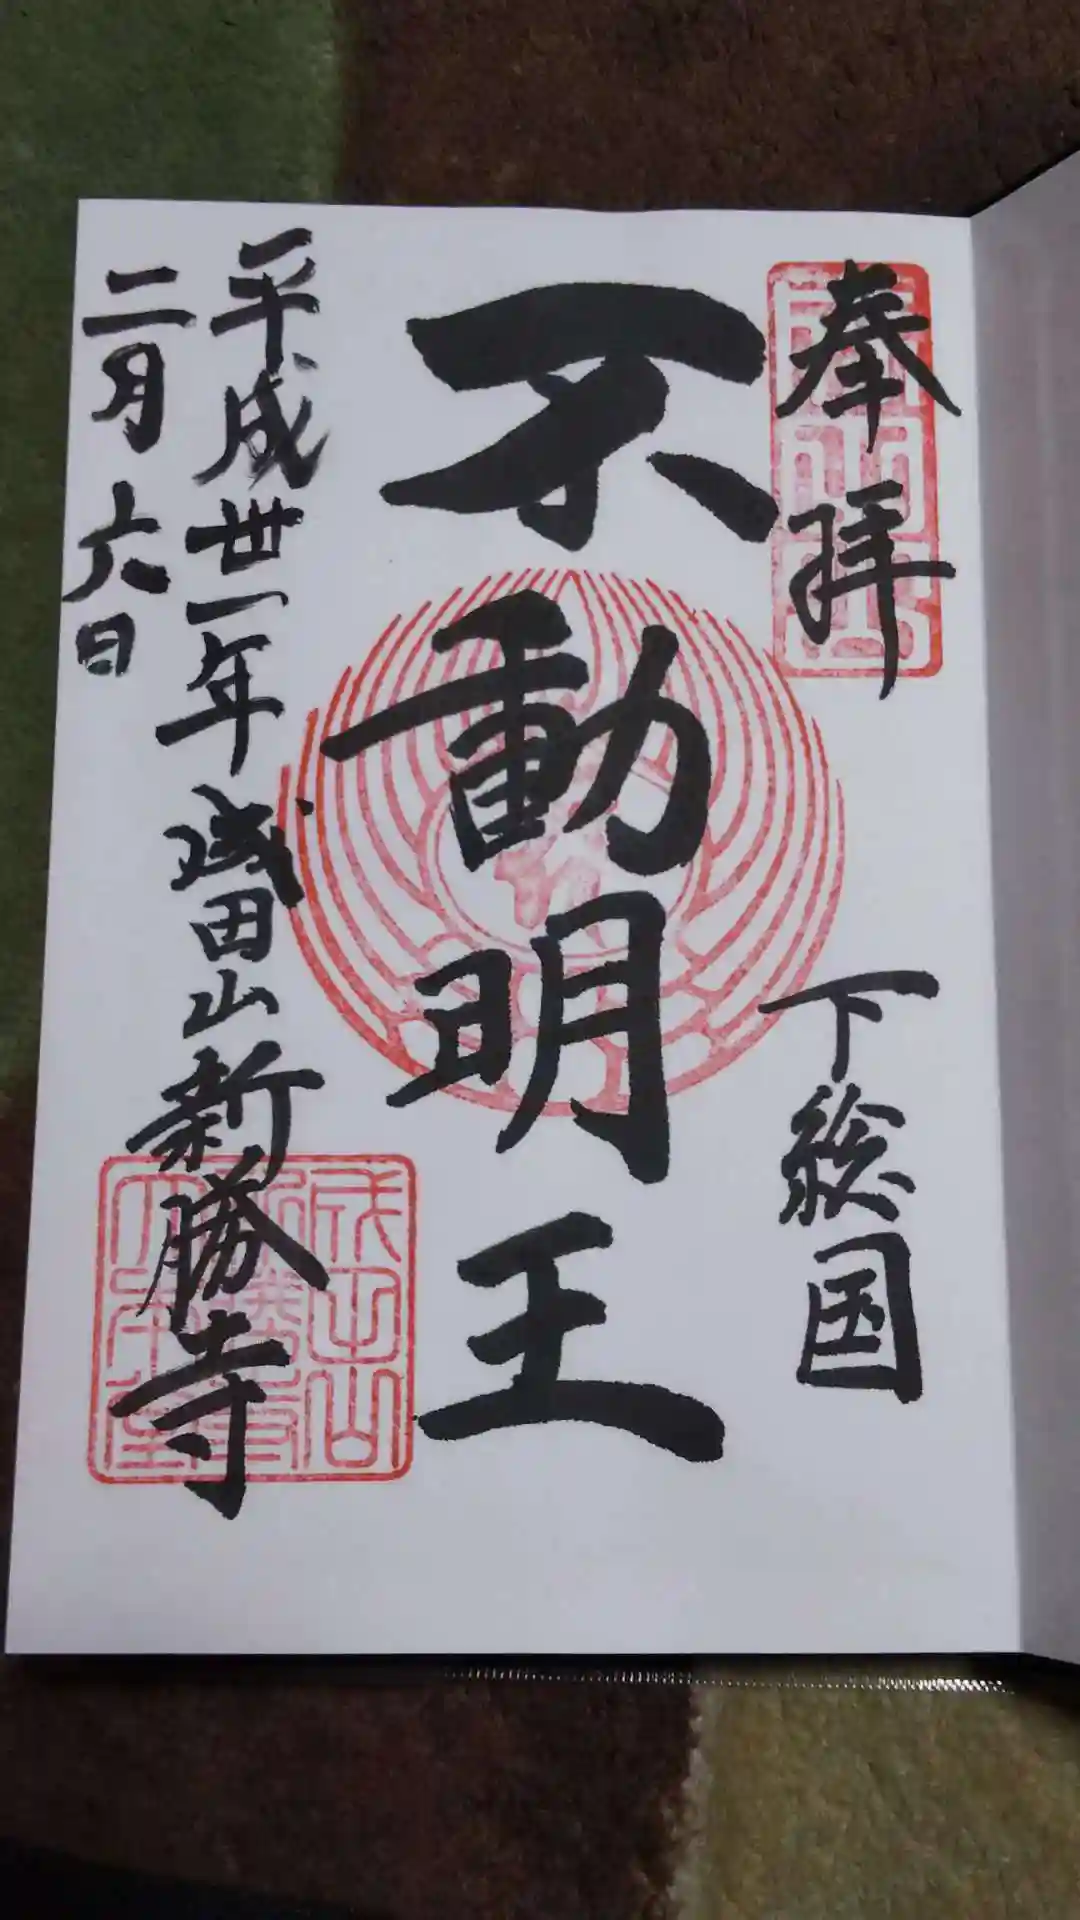 奉拝
下総国
不動明王
平成丗一年 成田山新勝寺
二月六日
成田山